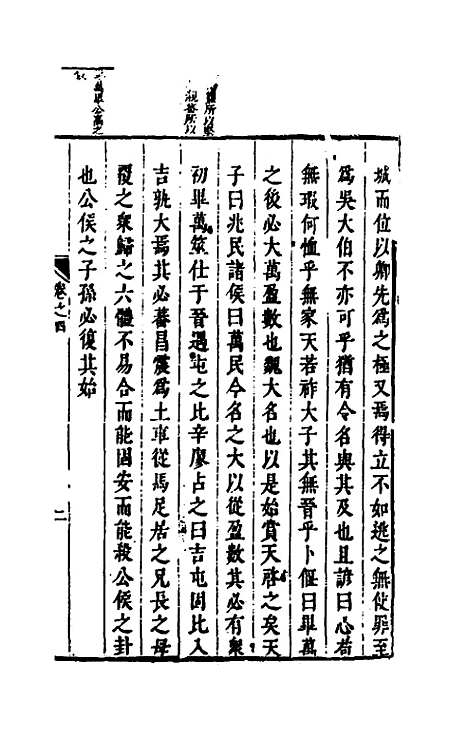 城而位以卿先爲之極又焉得立不如逃之無使罪至
爲吳大伯不亦可乎猶有令名與其及也且諺曰心苟
無瑕何恤乎無家天若祚大子其無晉乎卜偃曰畢萬
之後必大萬盈數也魏大名也以是始賞天啓之矣天
子曰兆民諸侯曰萬民今名之大以從盈數其必有衆
初畢萬筮仕于晉遇屯之比辛廖占之曰吉屯固比入
吉孰大焉其必蕃昌震爲土車從馬足居之兄長之母
覆之衆歸之六體不易合而能固安而能殺公侯之卦
也公侯之子孫必復其始
卷之四
二